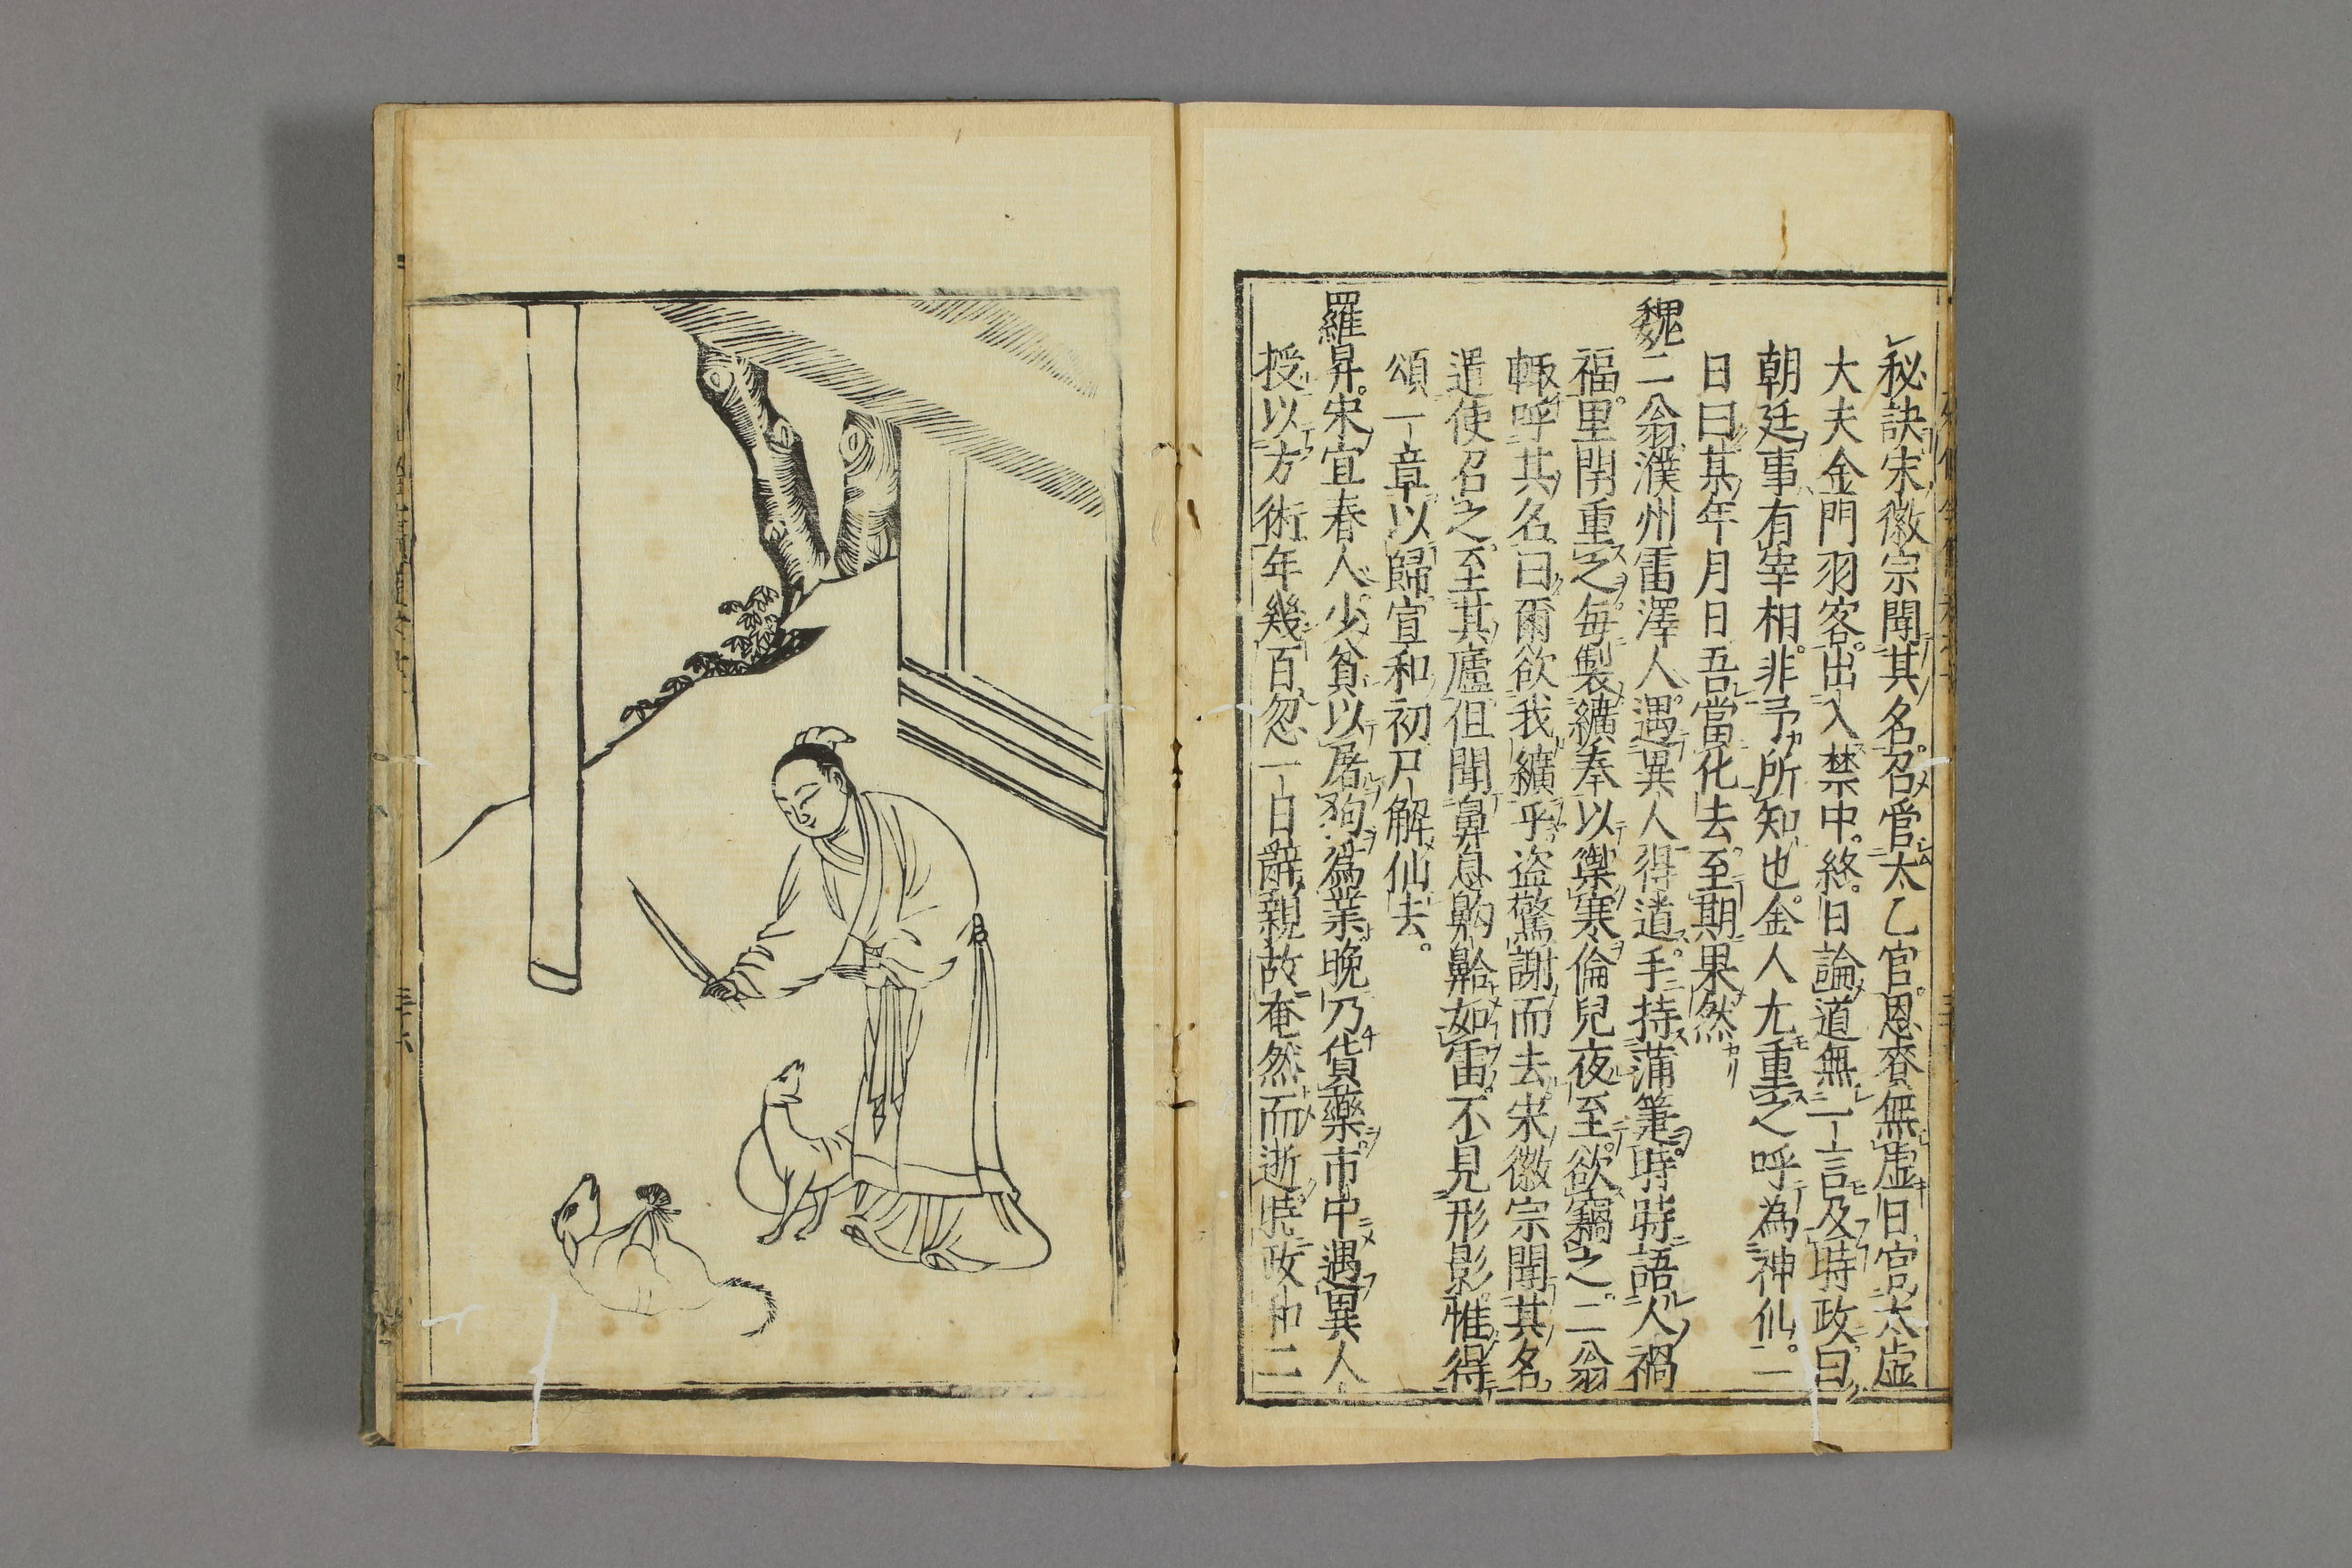 秘訣宋徽宗聞其名召官太乙官恩賚無虛日官太虛
大夫金門羽客出入禁中終日論道無一言及時政曰
朝廷事有宰相非予所知也金人尤重之呼為神仙一
日曰某年月日吾當化去至期果然
魏二翁濮州雷澤人遇異人得道手持蒲箑時時語人禍
福里閈重之每製纊奉以禦寒偷兒夜至欲竊之二翁
輙呼其名曰爾欲我纊乎盗驚謝而去宋徽宗聞其名
遣使召之至其廬但聞鼻息齁鼾如雷不見形影惟得
頌一章以歸宣和初尸解仙去
羅昇宋宜春人少貧以屠狗爲業晚乃貨藥市中遇異人
授以方術年幾百忽一日辭親故奄然而逝時政和二
三十六